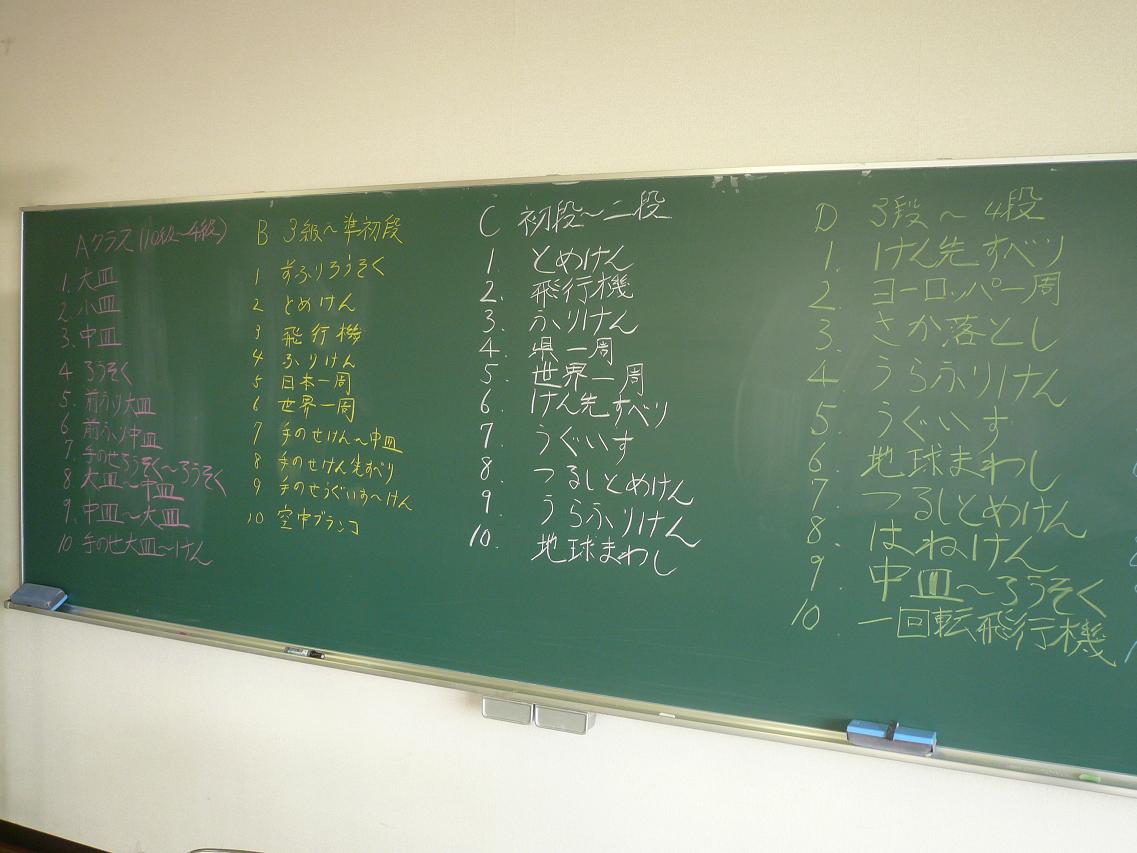 Aクラス(10級〜4級)
1. 大皿
2. 小皿
3. 中皿
4 ろうそく
5. 前ふり大皿
6. 前ふり中皿
7. 手のせろうそく〜ろうそく
8 大皿〜中皿
9. 中皿〜大皿
10 手のせ大皿〜けん
B 3級〜準初段
1 前ふりろうそく
2 とめけん
3 飛行機
4 ふりけん
5 日本一周
6 世界一周
7 手のせけん〜中皿
8 手のせけん先すべり
9 手のせうぐいす〜けん
10 空中ブランコ
C 初段〜二段
1. とめけん
2. 飛行機
3. ふりけん
4. 県一周
5. 世界一周
6. けん先すべり
7. うぐいす
8. つるしとめけん
9. うらふりけん
10. 地球まわし
D 3段〜4段
1. けん先すべり
2. ヨーロッパ一周
3. さか落とし
4. うらふりけん
5 うぐいす
6. 地球まわし
7. つるしとめけん
8. はねけん
9. 中皿〜ろうそく
10. 一回転飛行機